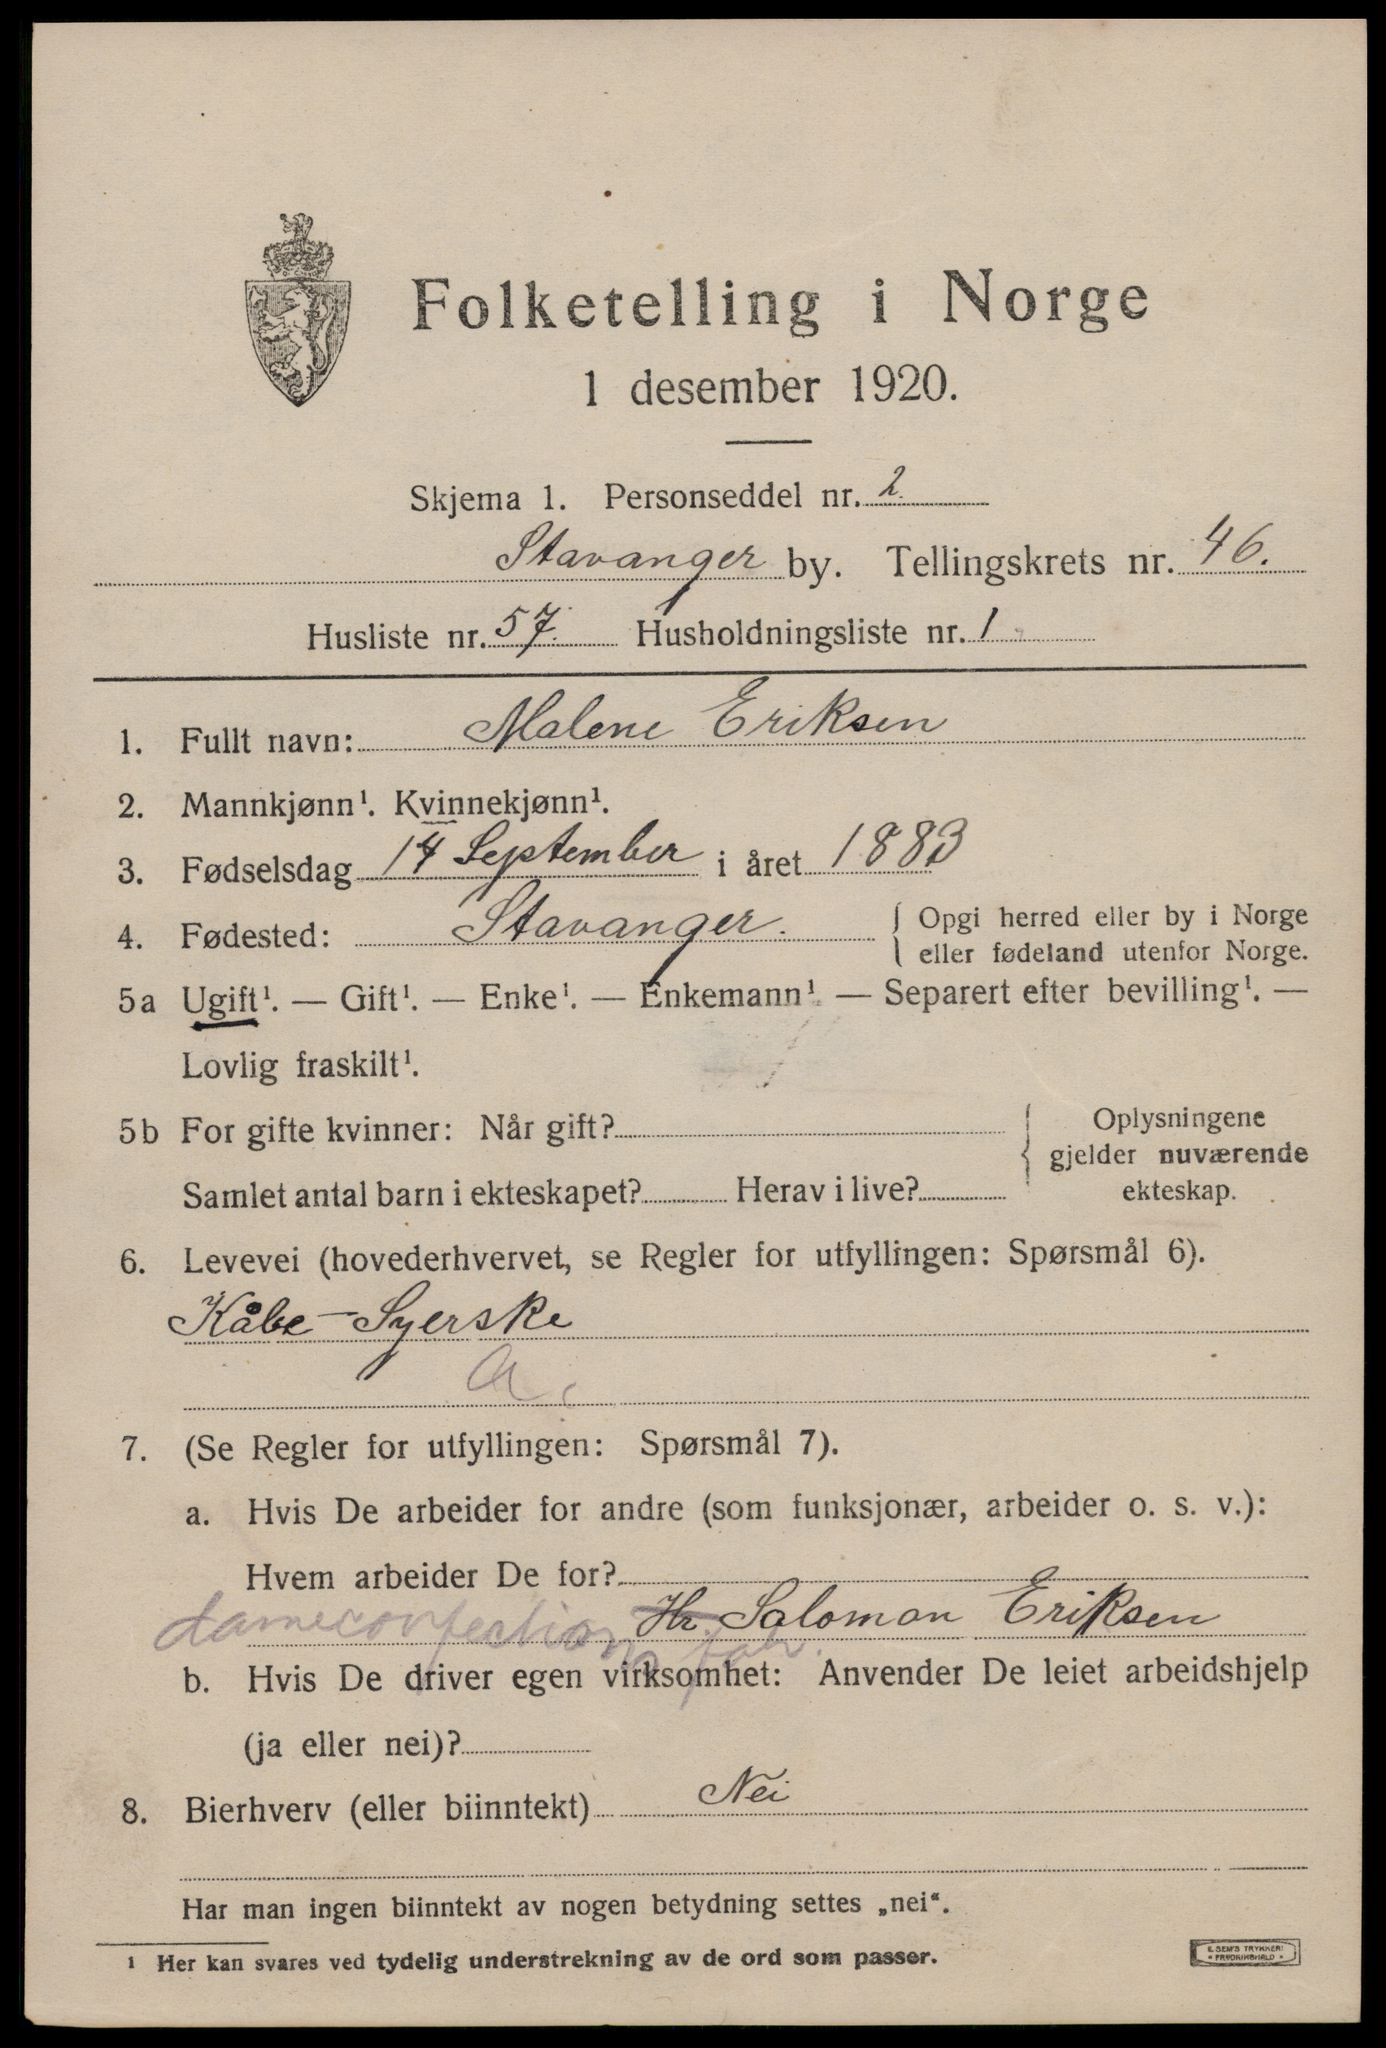 Folketelling i Norge
1 desember 1920.
Skjema 1. Personseddel nr. 2
Stavanger by. Tellingskrets nr. 46.
Husliste nr. 57. Husholdningsliste nr. 1
1. Fullt navn: Malene Eriksen
2. Mannkjønn¹. Kvinnekjønn¹.
3. Fødselsdag 14 September i året 1883
4. Fødested: Stavanger. { Opgi herred eller by i Norge
eller fødeland utenfor Norge.
5a Ugift¹. — Gift¹. — Enke¹. — Enkemann¹ — Separert efter bevilling¹. —
Lovlig fraskilt¹.
5b For gifte kvinner: Når gift? { Oplysningene
gjelder nuværende
Samlet antal barn i ekteskapet? Herav i live? ekteskap.
6. Levevei (hovederhvervet, se Regler for utfyllingen: Spørsmål 6).
Kåbe-Syerske
a.
7. (Se Regler for utfyllingen: Spørsmål 7).
a. Hvis De arbeider for andre (som funksjonær, arbeider o. s. v.):
Hvem arbeider De for?
Hr. Salomon Eriksen
dameconfections fabr.
b. Hvis De driver egen virksomhet: Anvender De leiet arbeidshjelp
(ja eller nei)?
8. Bierhverv (eller biinntekt) Nei
Har man ingen biinntekt av nogen betydning settes „nei“.
¹ Her kan svares ved tydelig understrekning av de ord som passer.
E. SEM'S TRYKKERI
• FREDRIKSHALD •